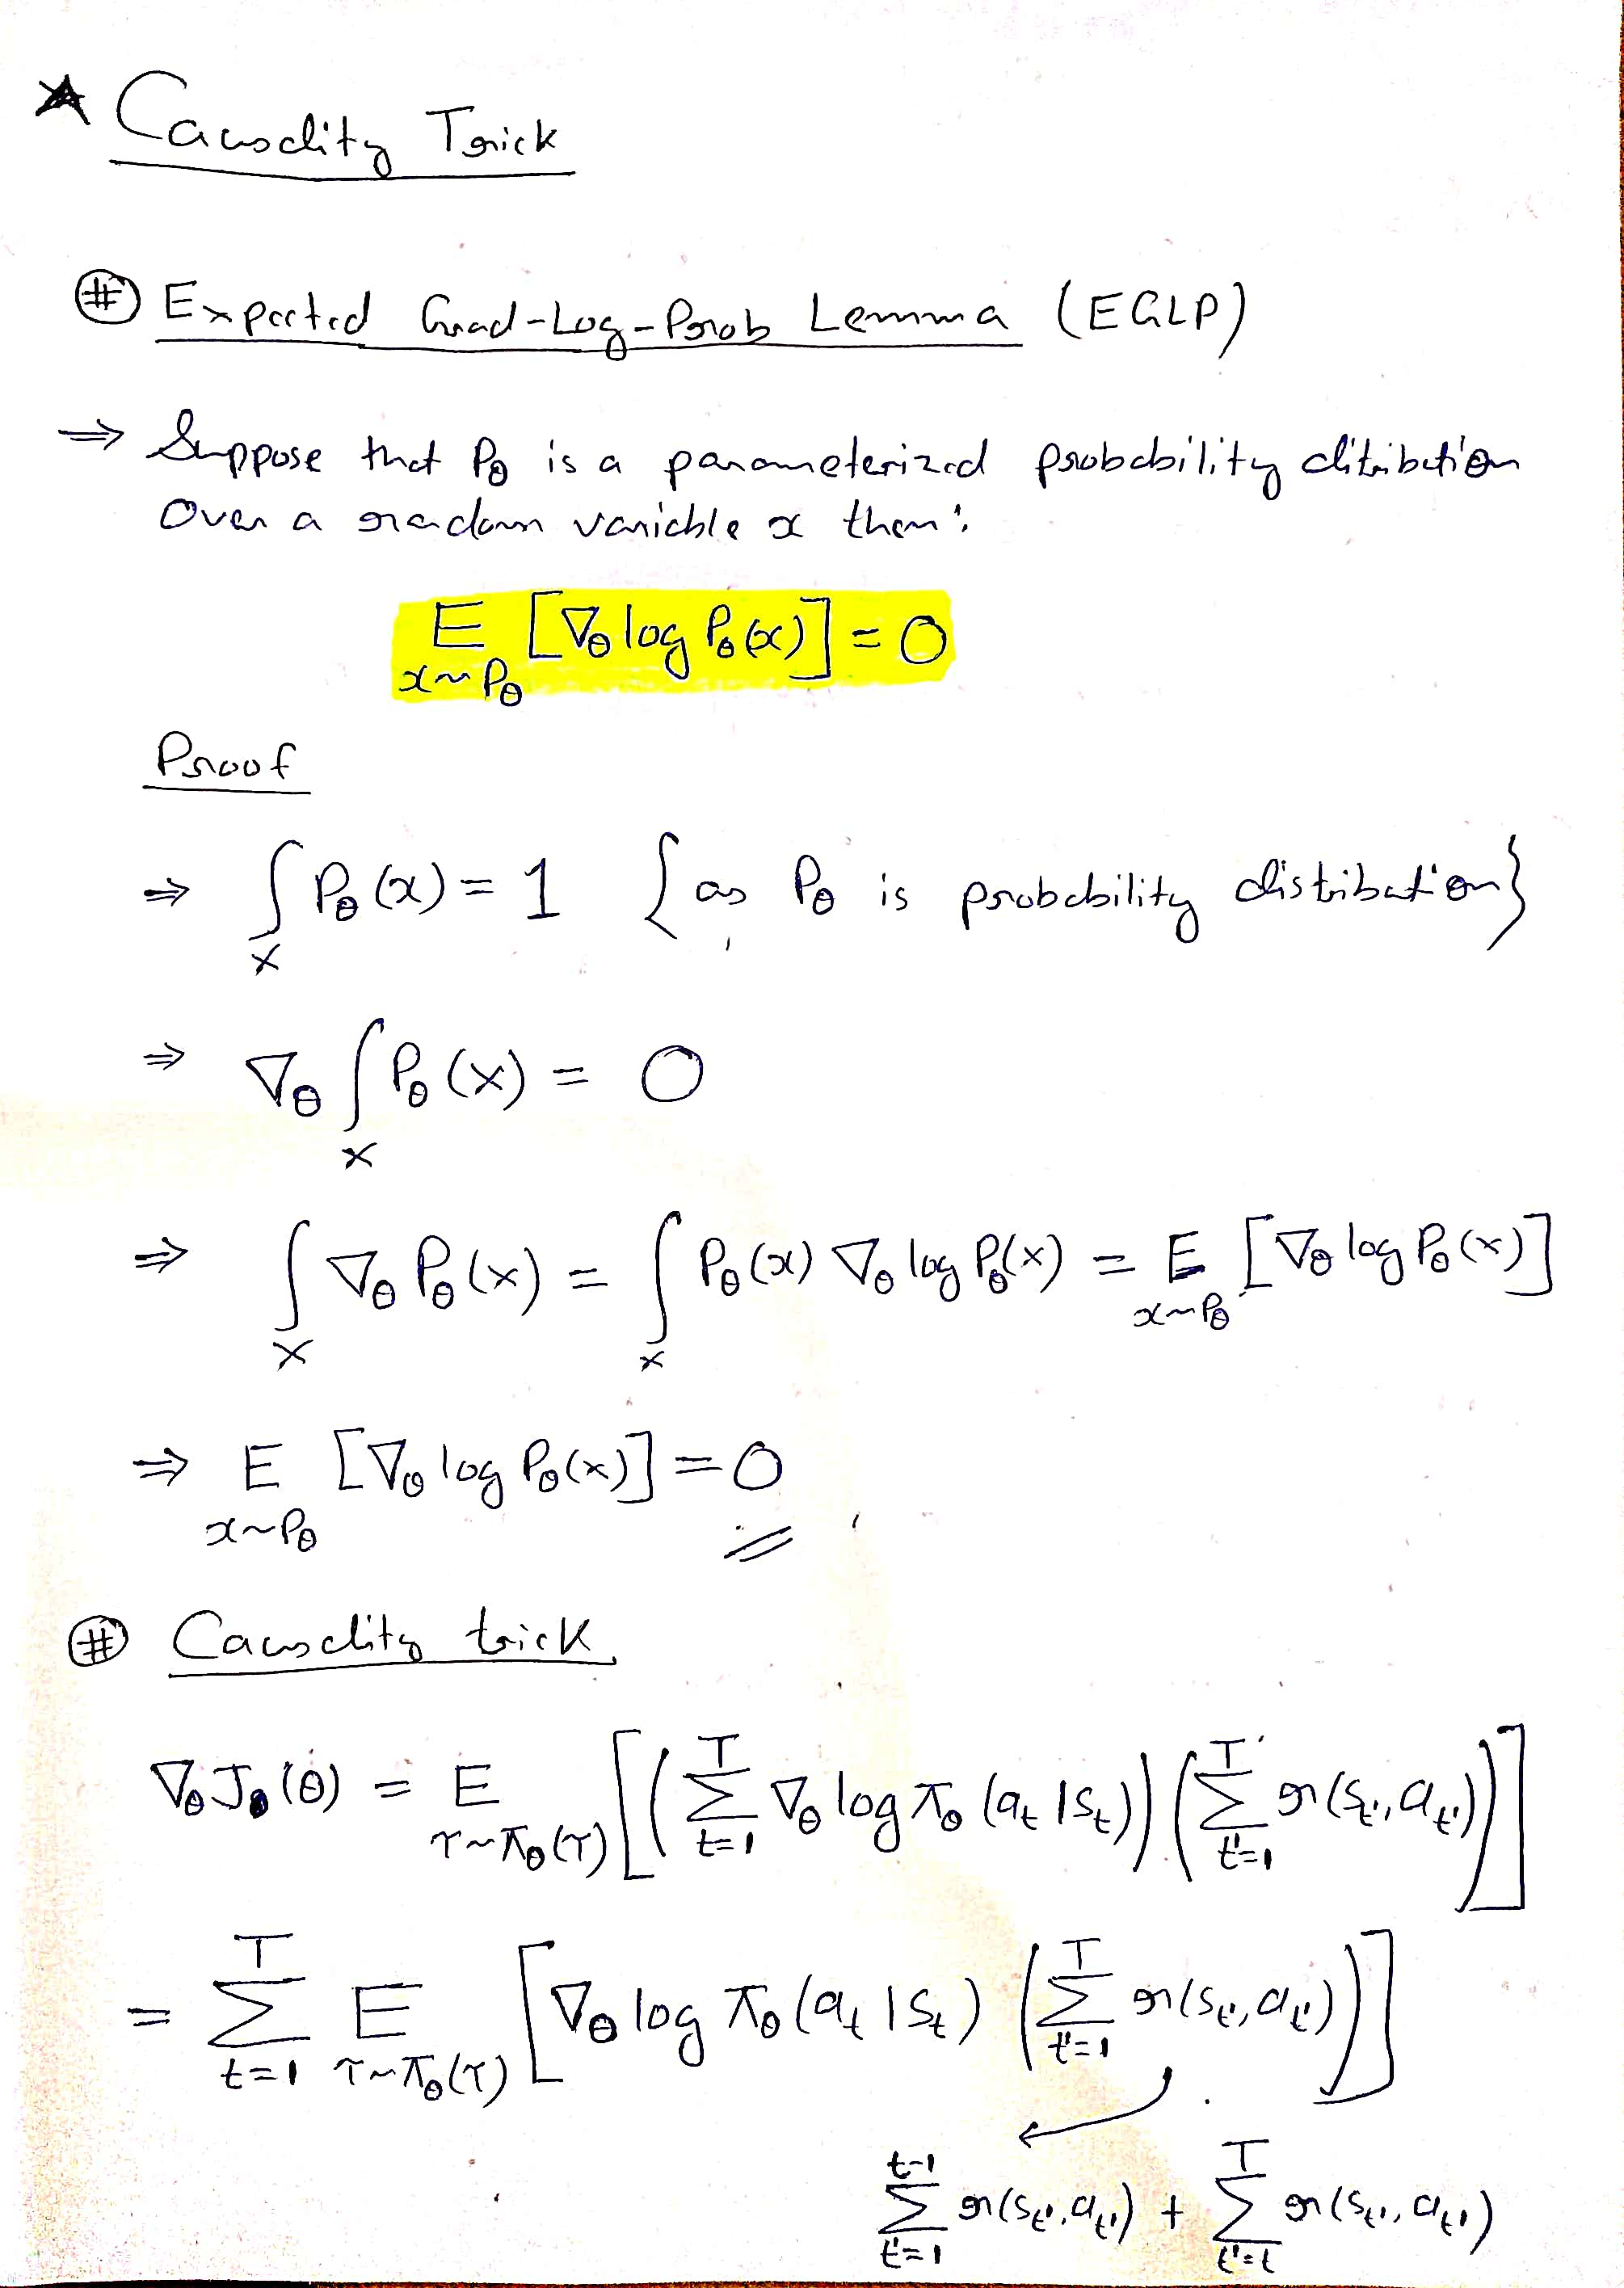 ★ Causality Trick
# Expected Grad-Log-Prob Lemma (EGLP)
⇒ Suppose that P_θ is a parameterized probability ditribution
Over a random variable x then:
E_{x~P_θ} [∇_θ log P_θ(x)] = 0
Proof
⇒ ∫_x P_θ(x) = 1 {as P_θ is probability distribution}
⇒ ∇_θ ∫_x P_θ(x) = 0
⇒ ∫_x ∇_θ P_θ(x) = ∫_x P_θ(x) ∇_θ log P_θ(x) = E_{x~P_θ} [∇_θ log P_θ(x)]
⇒ E_{x~P_θ} [∇_θ log P_θ(x)] = 0
# Causality trick
∇_θ J_θ(θ) = E_{τ~π_θ(τ)} [(∑_{t=1}^{T} ∇_θ log π_θ(a_t|s_t)) (∑_{t'=1}^{T} r(s_{t'}, a_{t'}))]
= ∑_{t=1}^{T} E_{τ~π_θ(τ)} [∇_θ log π_θ(a_t|s_t) (∑_{t'=1}^{T} r(s_{t'}, a_{t'}))]
∑_{t'=1}^{t-1} r(s_{t'}, a_{t'}) + ∑_{t'=t}^{T} r(s_{t'}, a_{t'})